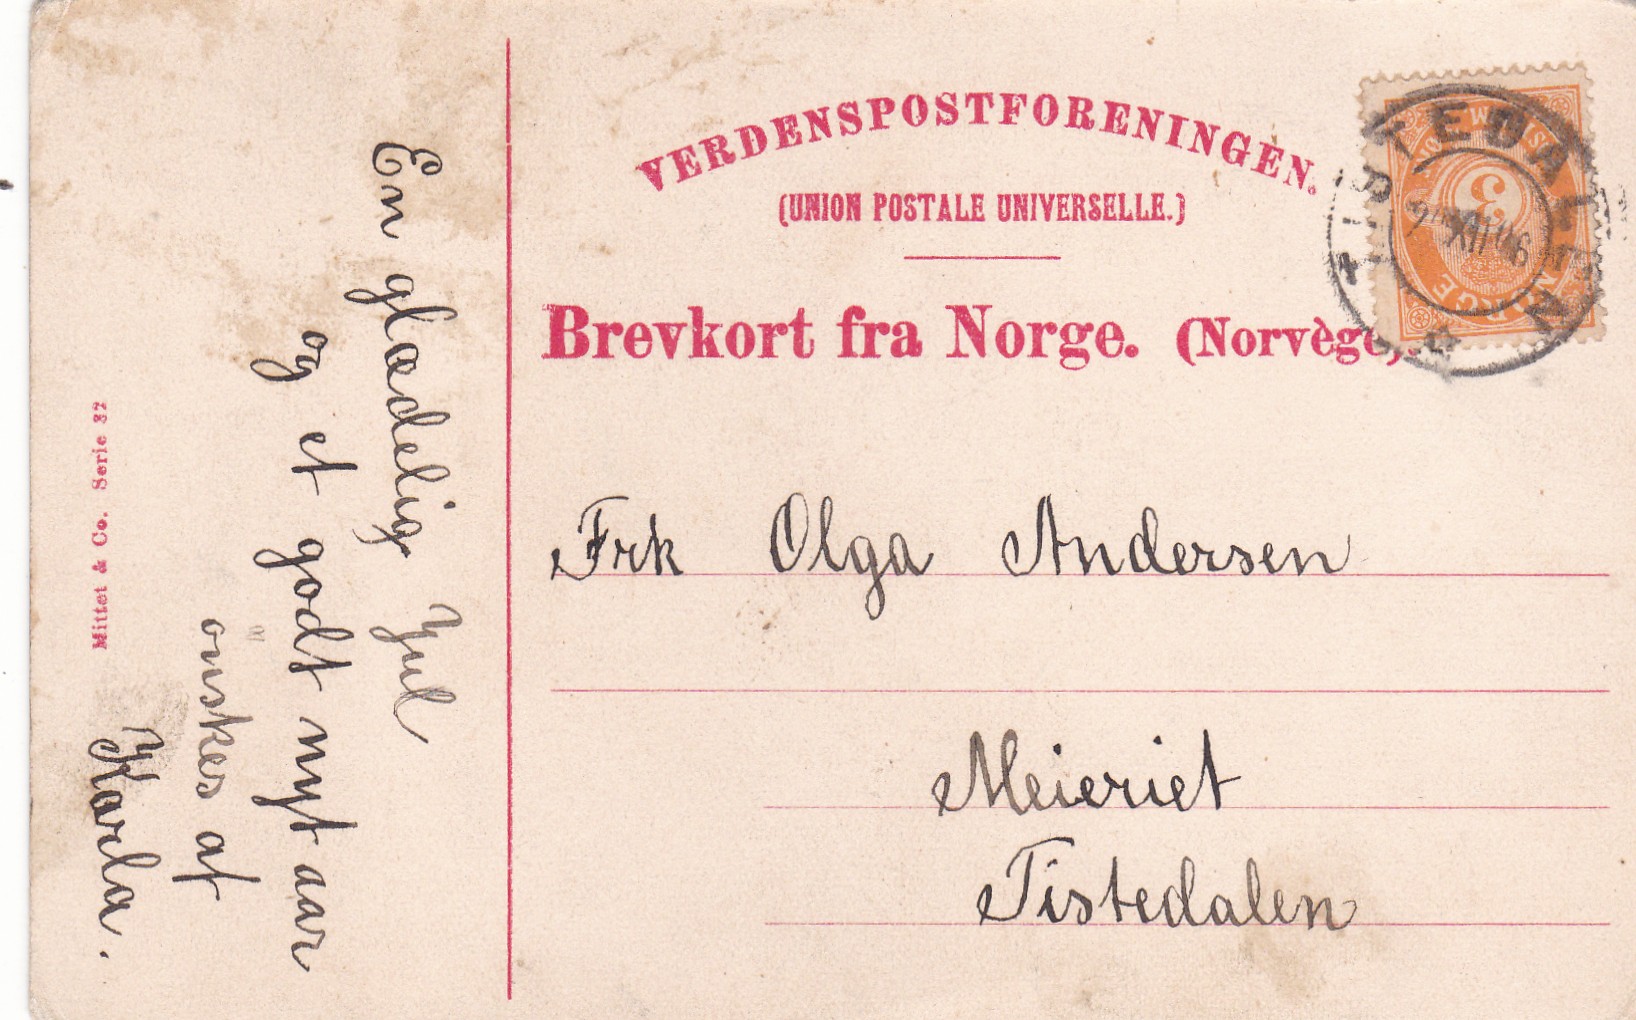 VERDENSPOSTFORENINGEN.
(UNION POSTALE UNIVERSELLE.)
Brevkort fra Norge. (Norvège).
TISTEDALEN
3
NORGE
XII 06
Frk Olga Andersen
Meieriet
Tistedalen
En glædelig Jul
og et godt nytaar
önskes af
Karla.
Mittet & Co. Serie 32